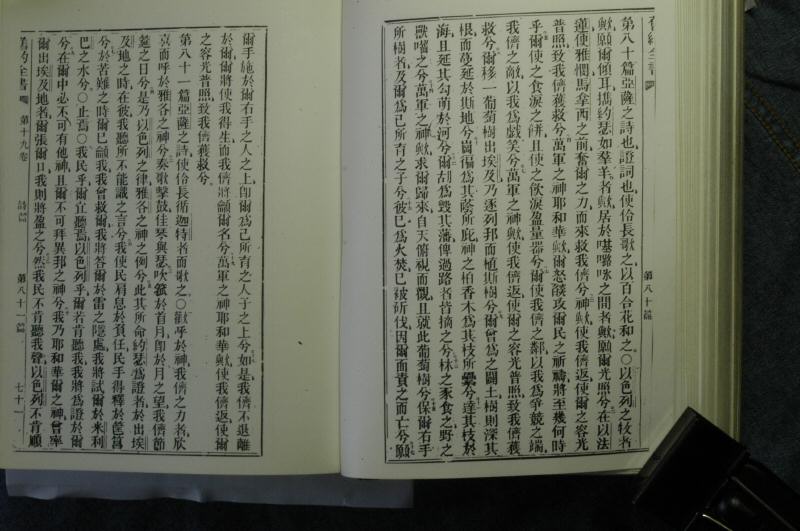 舊約全書
第八十篇
第八十篇亞薩之詩也證詞也使伶長歌之以百合花和之○以色列之牧者
歟願爾傾耳攜約瑟如羣羊者歟居於𠼻嚧咏之間者歟願爾光照兮在以法
蓮便雅憫馬拿西之前奮爾之力而來救我儕兮神歟使我儕返使爾之容光
普照致我儕獲救兮萬軍之神耶和華歟爾怒燄攻爾民之祈禱將至幾何時
乎爾使之食淚之餅且使之飲淚盈量器兮爾使我儕之鄰以我爲爭競之端
我儕之敵以我爲戲笑兮萬軍之神歟使我儕返使爾之容光普照致我儕獲
救兮爾移一葡萄樹出埃及乃逐列邦而植斯樹兮爾曾爲之闢土樹則深其
根而蔓延於斯地兮岡徧爲其蔭所庇神之柏香木爲其枝所纍兮達其枝於
海且延其勾萌於河兮爾胡爲毀其藩俾過路者皆摘之兮林之豕食之野之
獸囓之兮萬軍之神歟求爾歸來自天俯視而觀且就此葡萄樹兮保爾右手
所樹者及爾爲己所育之子兮彼已爲火焚已被斫伐因爾面責之而亡兮願
爾手施於爾右手之人之上卽爾爲己所育之人子之上兮如是我儕不退離
於爾爾將使我得生而我儕將籲爾名兮萬軍之神耶和華歟使我儕返使爾
之容光普照致我儕獲救兮
第八十一篇亞薩之詩使伶長循迦特者而歌之○歡乎於神我儕之力者欣
喜而呼於雅各之神兮奏歌擊鼓佳琴與瑟吹籥於首月卽於月之望我儕節
筵之日兮是乃以色列之律雅各之神之例兮此其所命約瑟爲證者於出埃
及地之時在彼我聽所不能識之言兮我使民肩息於負任民手得釋於筐筥
兮於苦難之時爾已籲我我曾救爾我將答爾於雷之隱處我將試爾於米利
巴之水兮○止焉○我民乎爾宜聽焉以色列乎爾若肯聽我我將爲證於爾
兮在爾中必不可有他神且爾不可拜異邦之神兮我乃耶和華爾之神曾率
爾出埃及地者爾張爾口我則將盈之兮然我民不肯聽我聲以色列不肯順
舊約全書
第十九卷
詩篇
第八十一篇
七十一